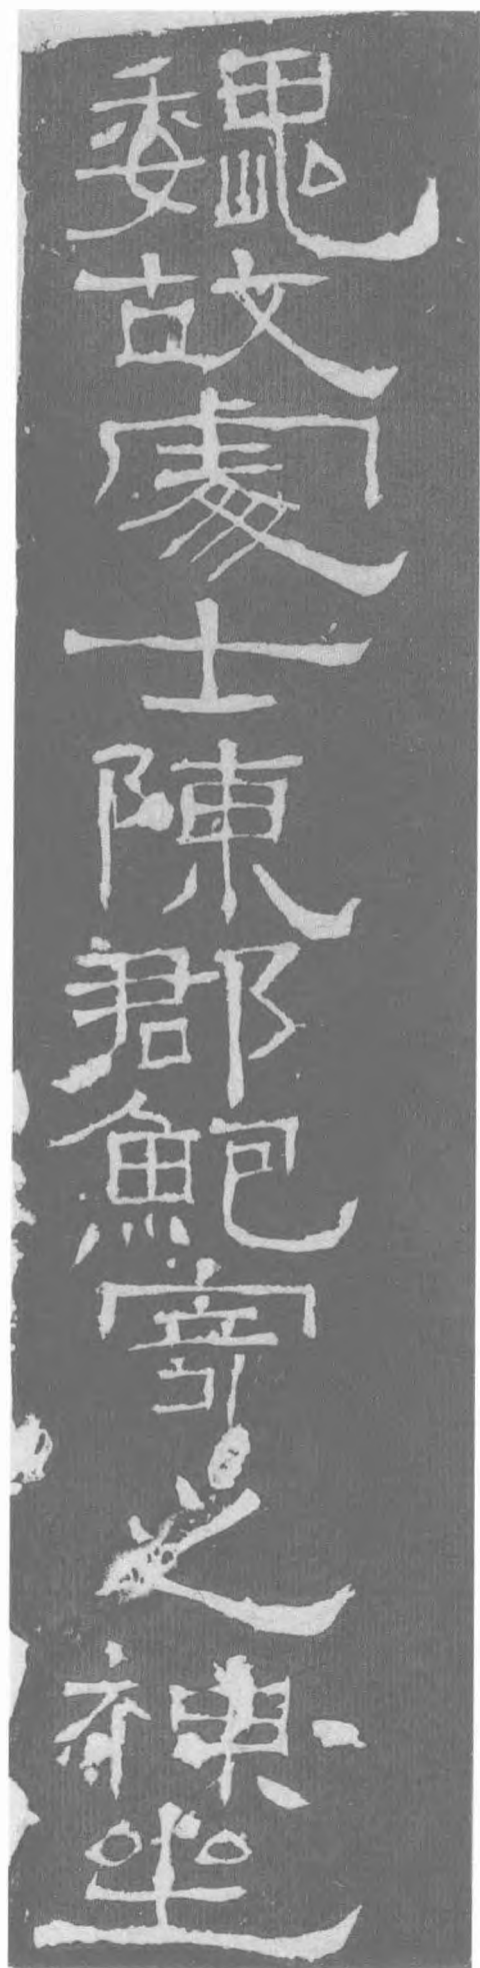 魏故處士陳郡鮑寄之神坐